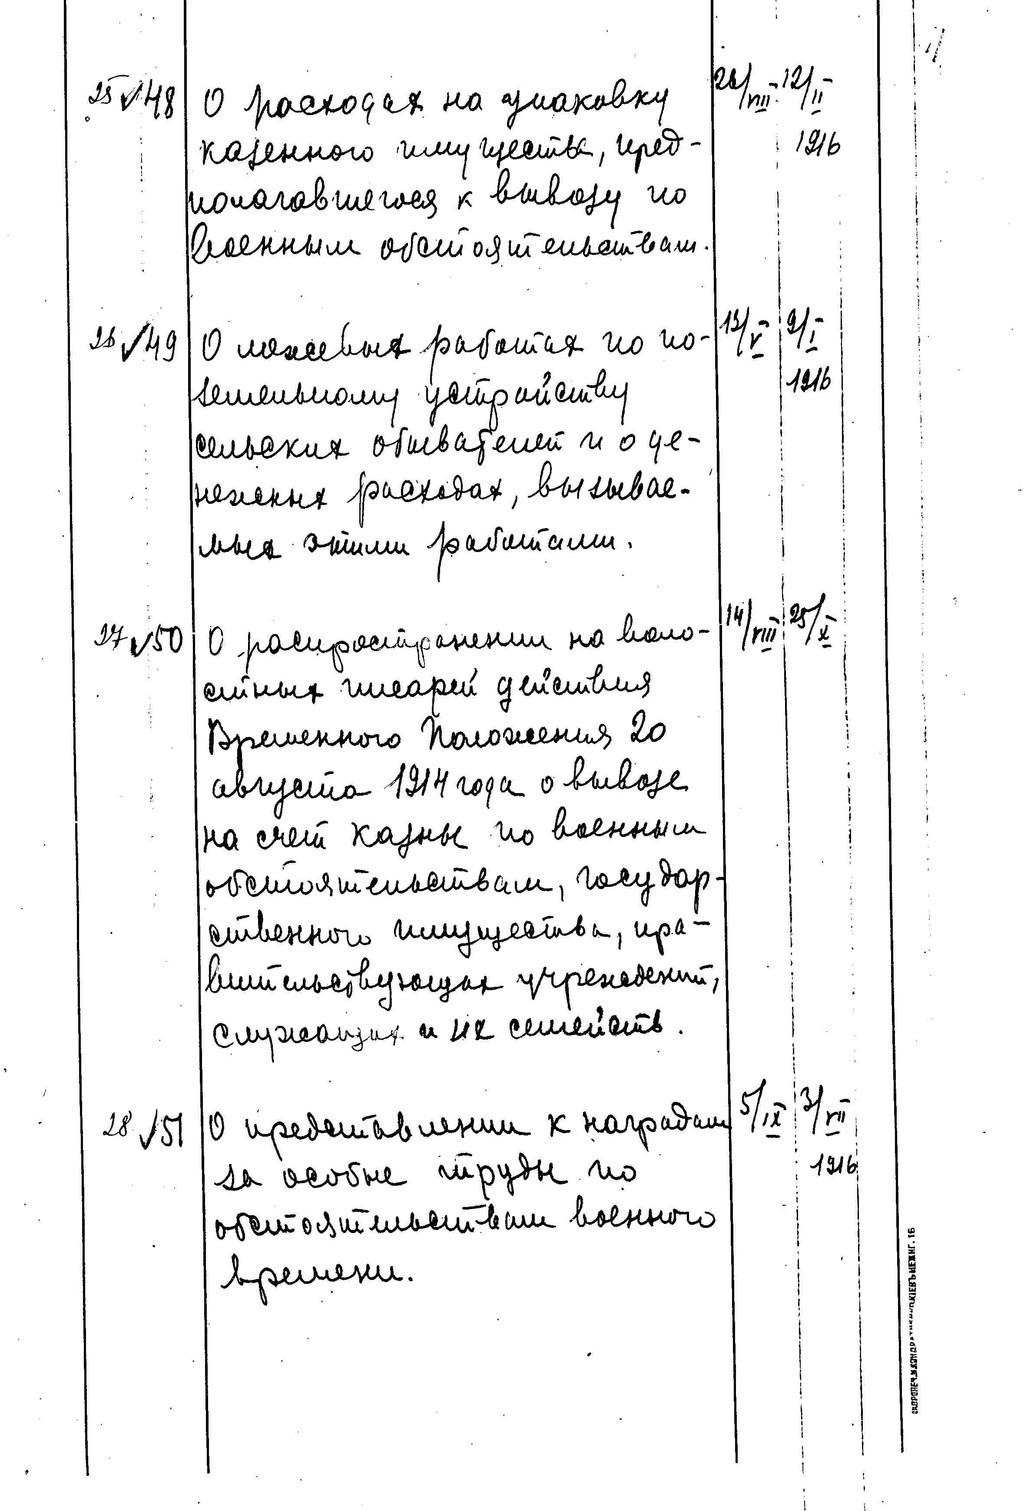 25 √48 О расходах на упаковку 26/VIII 12/II
казенного имущества, пред- 1916
полагавшегося к вывозу по
военным обстоятельствам.
26 √49 О межевых работах по по- 13/V 9/I
земельному устройству 1916
сельских обывателей и о де-
нежных расходах, вызывае-
мых этими работами.
27 √50 О распространении на воло- 14/VIII 25/X
стных писарей действия
Временного Положения 20
августа 1914 года о вывозе
на счет казны по военным
обстоятельствам, государ-
ственного имущества, пра-
вительствующих учреждений,
служащих и их семейств.
28 √51 О представлении к наградам 5/IX 3/VII
за особые труды по 1916
обстоятельствам военного
времени.